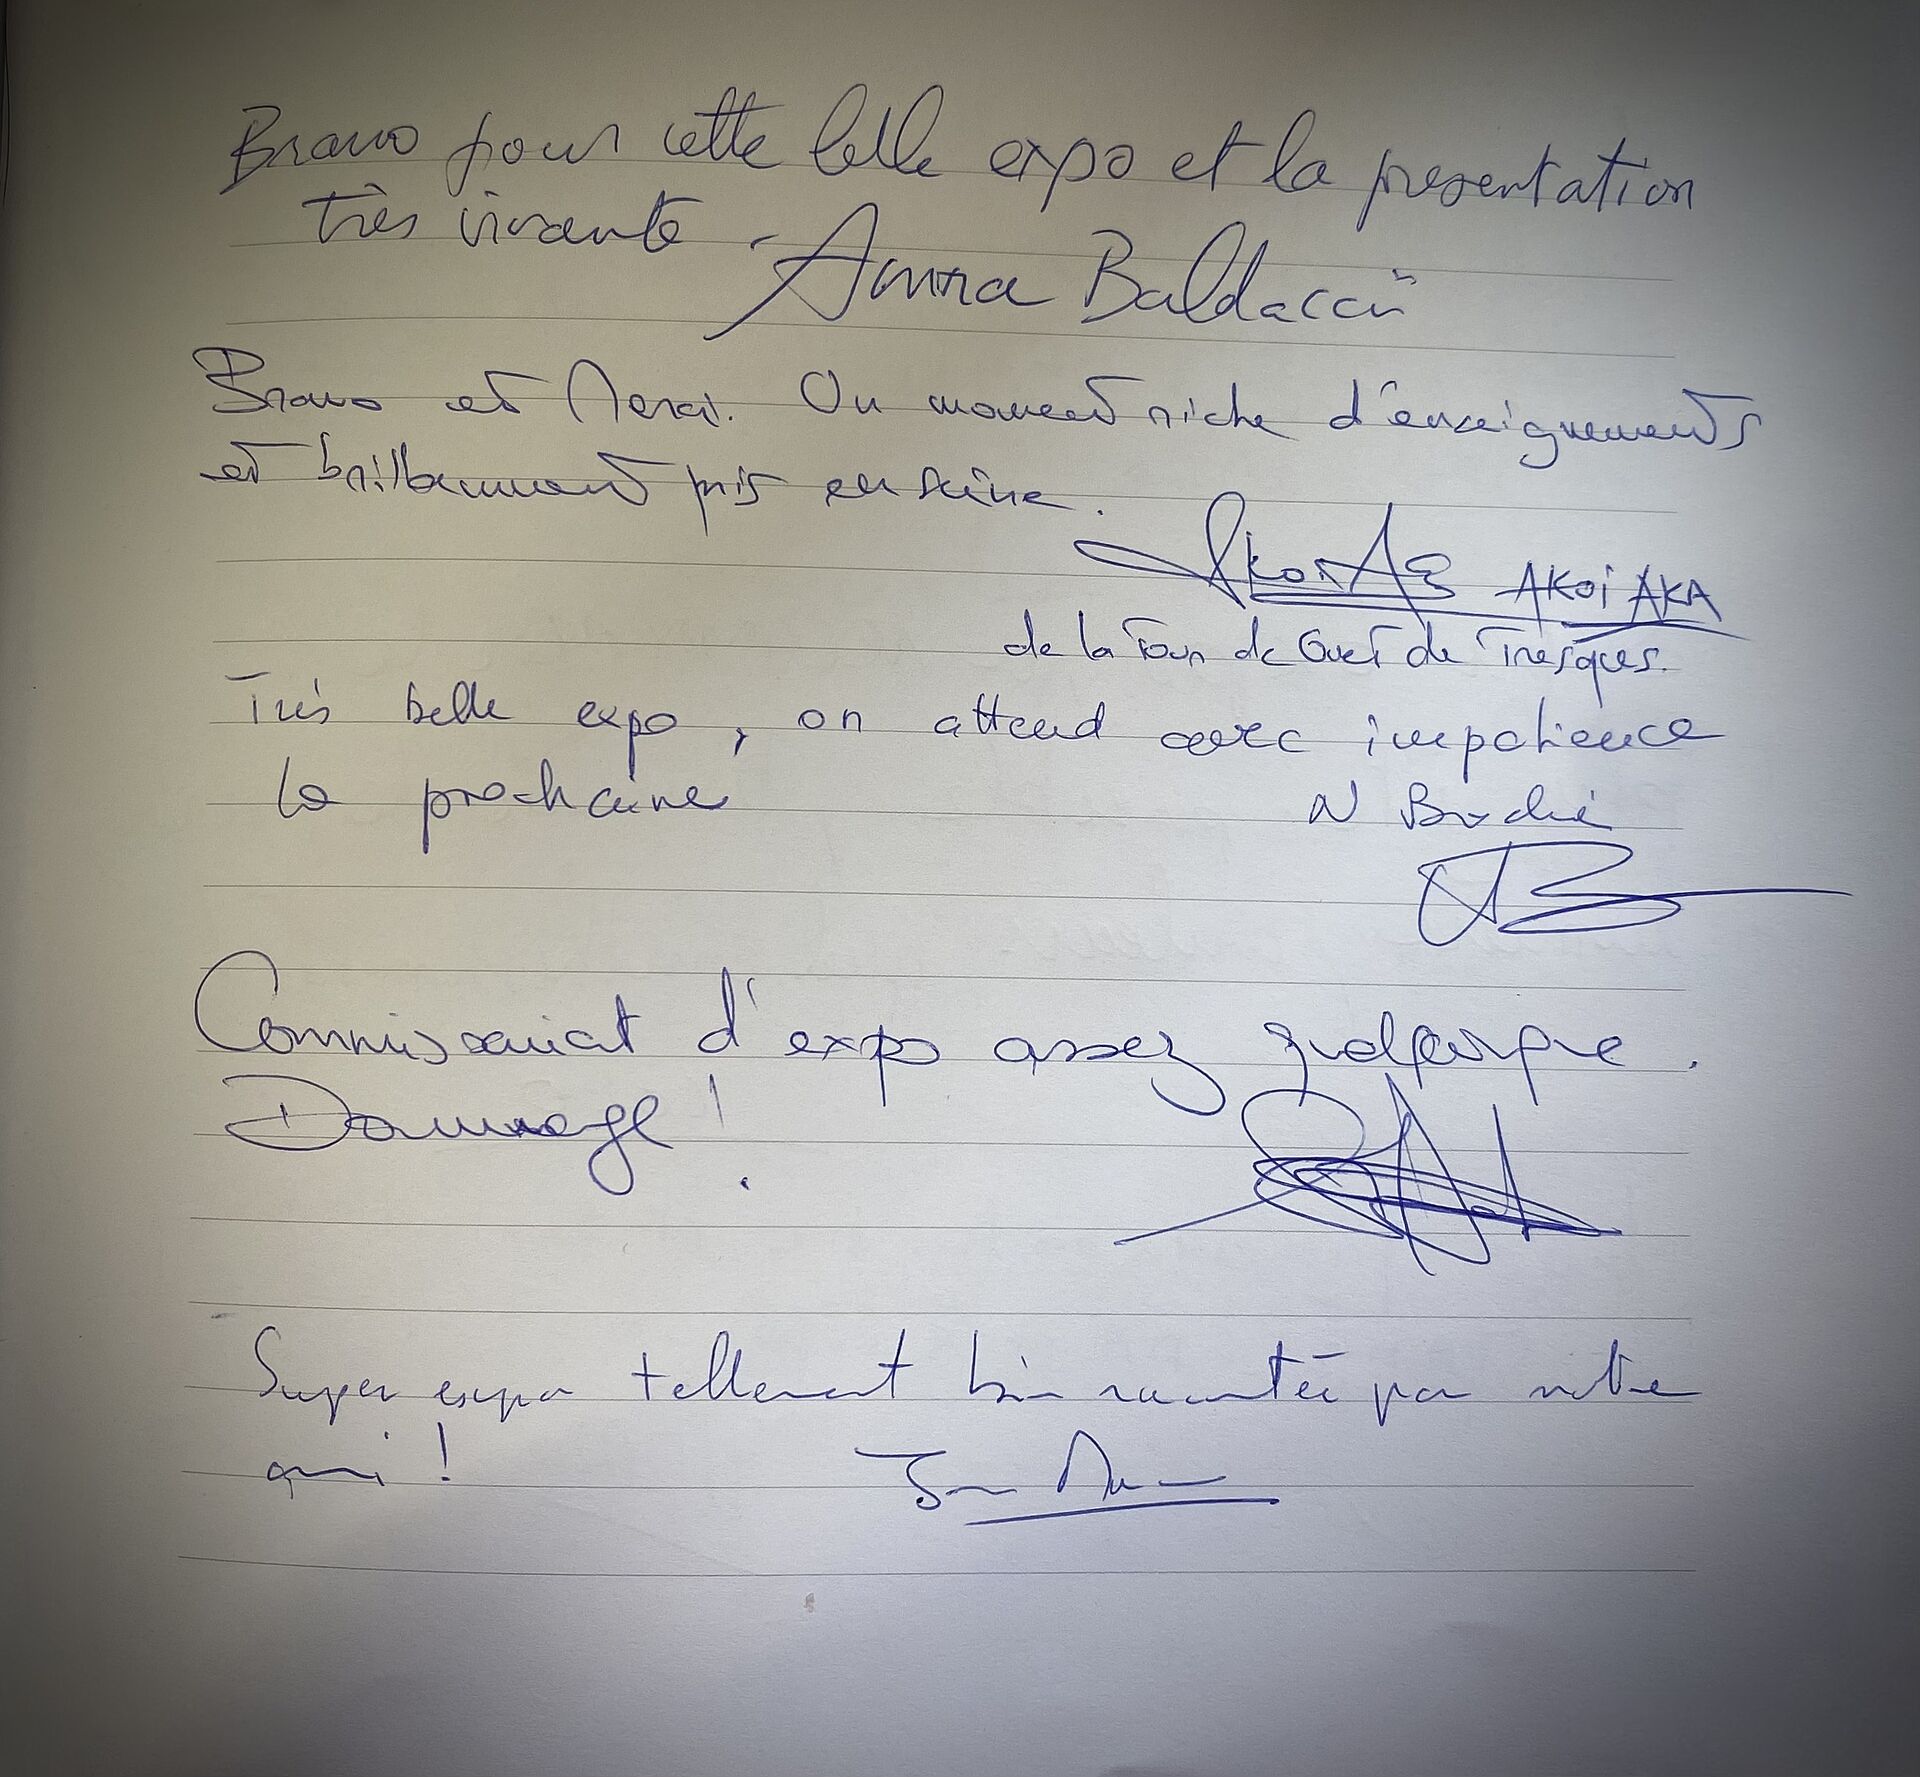 Bravo pour cette belle expo et la presentation
très vivante. Anna Baldacci
Bravo et Merci. Un moment riche d'enseignements
et brillamment mis en scène.
AKOI AKA
de la Tour de Guet de Tresques.
Très belle expo, on attend avec impatience
la prochaine
N Brodié
Commissariat d'expo assez quelconque.
Dommage !
Super expo tellement bien racontée par notre
ami !